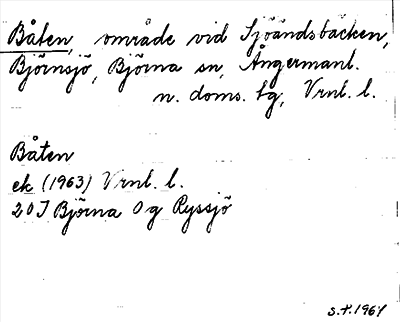 Båten, område vid Sjöändsbäcken,
Björnsjö, Björna sn, Ångermanl.
n. doms. tg, Vrnl. l.
Båten
ek (1963) Vrnl. l.
20J Björna Og Ryssjö
s.t. 1964